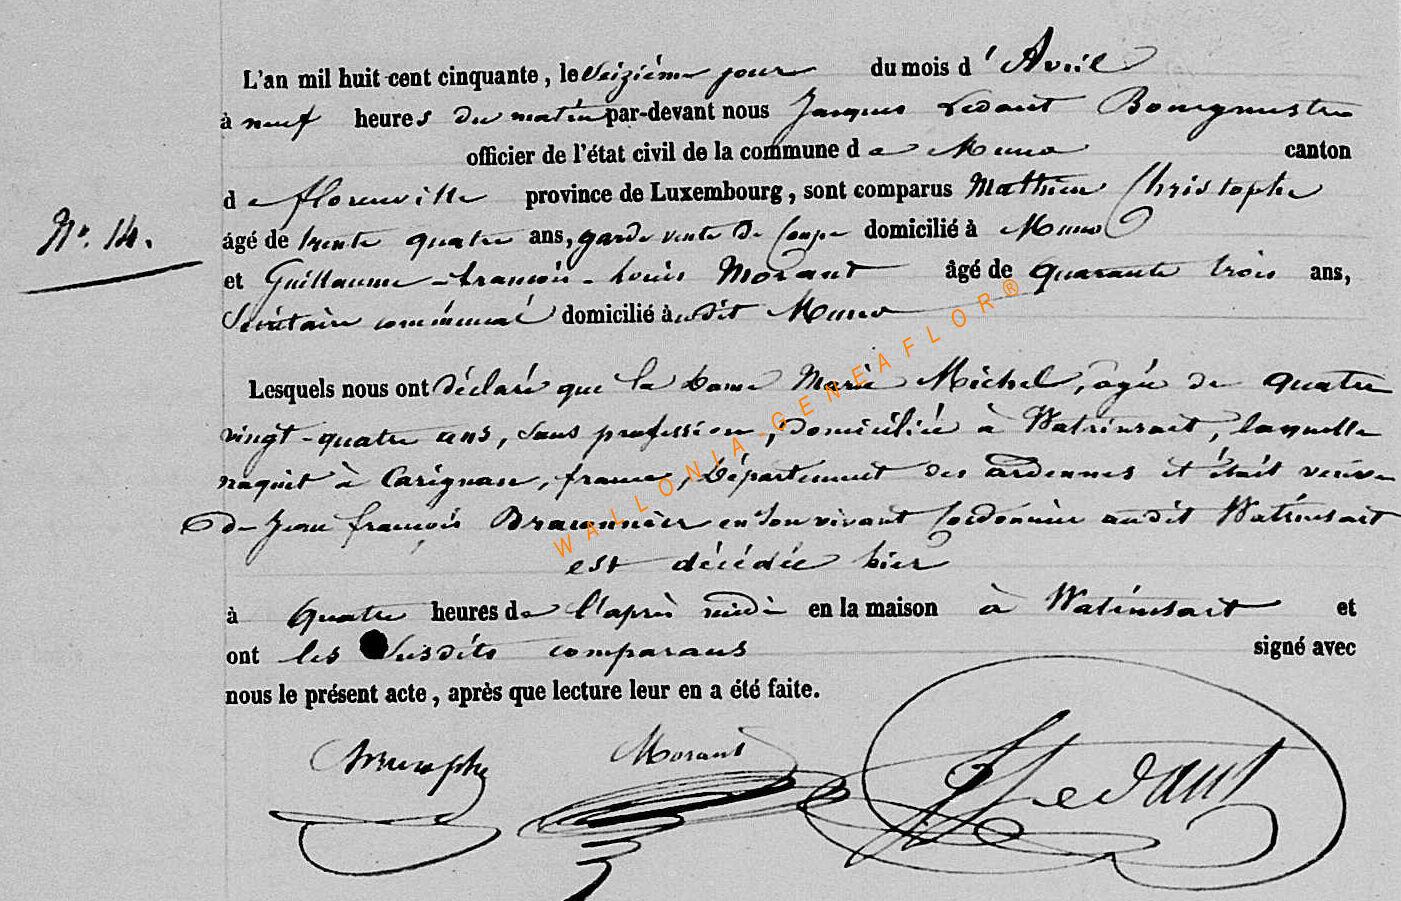 L'an mil huit cent cinquante, le Seizième jour du mois d'Avril
à neuf heures du matin par-devant nous Jacques Ledant Bourgmestre
officier de l'état civil de la commune de Muno canton
de florenville province de Luxembourg, sont comparus Mathieu Christophe
âgé de trente quatre ans, garde vente de Coupe domicilié à Muno
N° 14.
et Guillaume-francois-Louis Morant âgé de quarante trois ans,
Secrétaire communal domicilié audit Muno
Lesquels nous ont déclaré que la Dame Marie Michel, agée de quatre
vingt-quatre ans, sans profession, domiciliée à Watrinsart, laquelle
naquit à Carignan, france, Département des ardennes et était veuve
de Jean françois Braconnier en son vivant Cordonnier audit Watrinsart
est décédée hier
à quatre heures de l'après midi en la maison à Watrinsart et
ont les Susdits comparans signé avec
nous le présent acte, après que lecture leur en a été faite.
Christophe Morant Ledant
WALLONIA-GENEAFLOR®